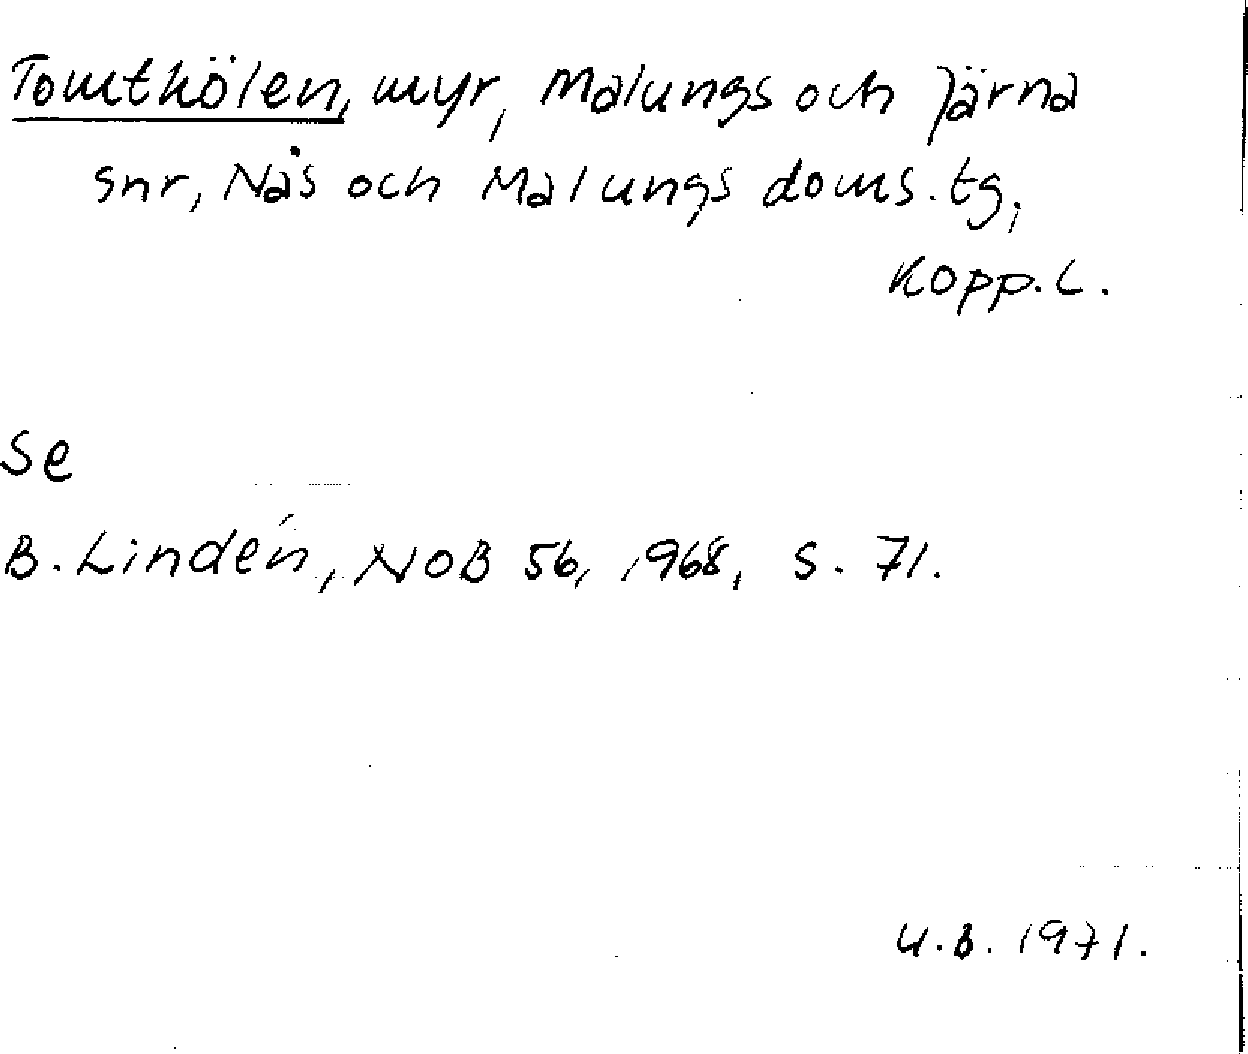 Tomtkölen, myr, Malungs och Järna
snr, Nås och Malungs doms. tg,
Kopp. L.
Se
B. Lindén, NOB 56, 1968, s. 71.
U.B. 1971.